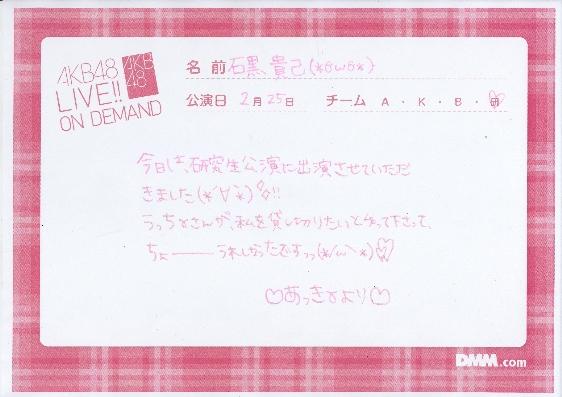 AKB48
LIVE!!
ON DEMAND
AKB
48
名前 石黒貴己(*δωδ*)
公演日 2月25日 チーム A・K・B・研
今日は、研究生公演に出演させていただ
きました(*´∀`*)!!
うっちょさんが、私を貸し切りたいと言って下さって、
ちょーーー うれしかったですっっ(*/ω\*)
♡あっきょより♡
DMM.com